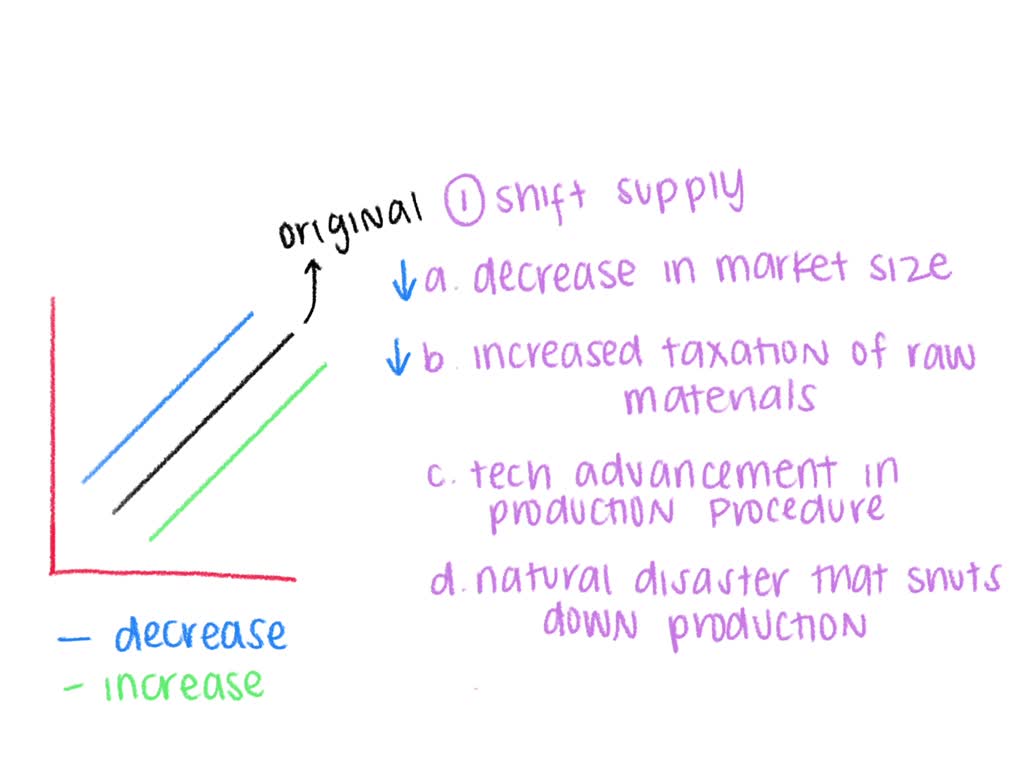 original
① shift supply
↓ a. decrease in market size
↓ b. increased taxation of raw
materials
c. tech advancement in
production procedure
d. natural disaster that shuts
down production
— decrease
- increase